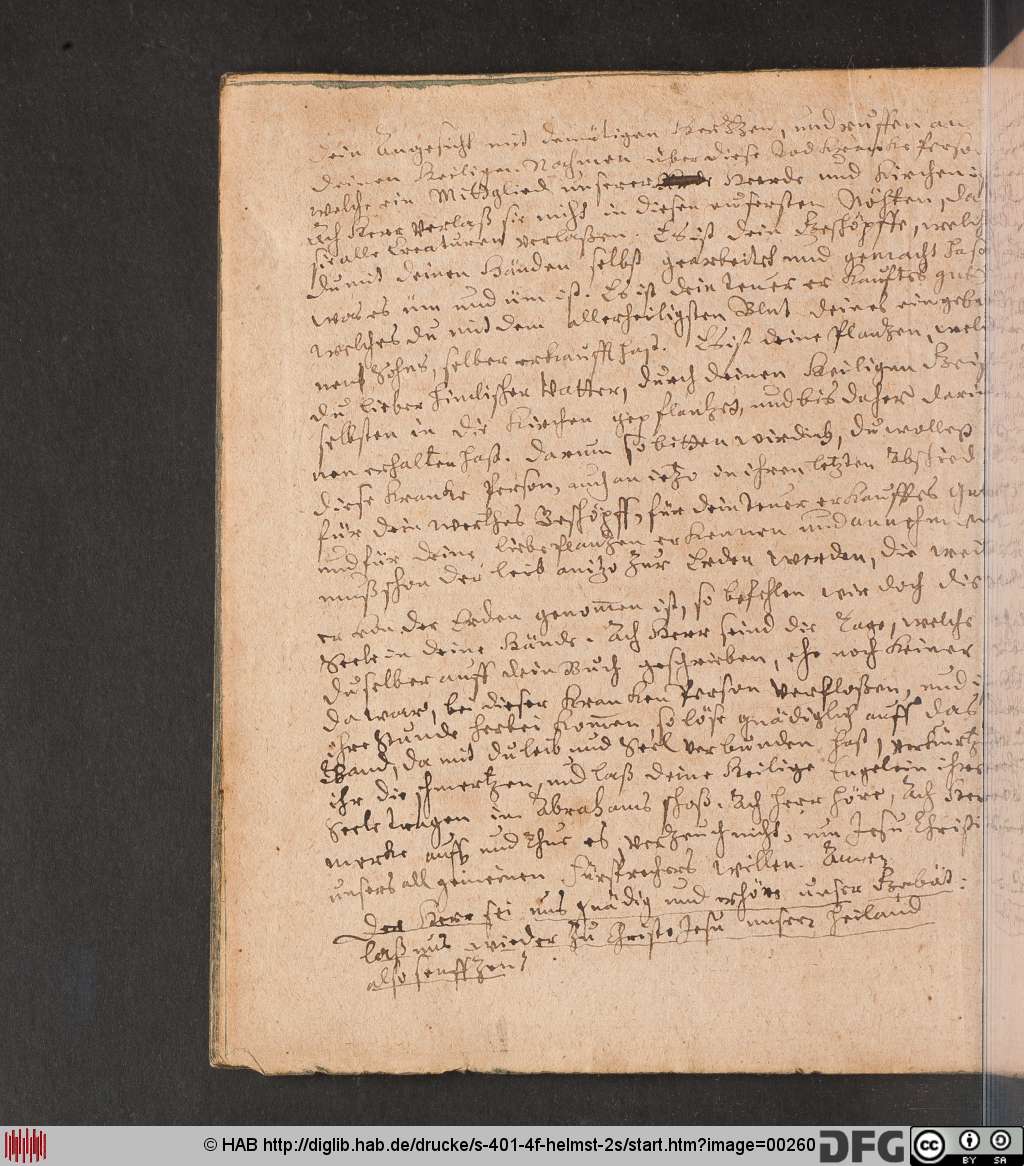 dein Angesicht mit demütigen Hertzen, und ruffen an
deinen Heiligen Nahmen über diese Tod Krancke Perso
welche ein Mittglied unserer Heerde und Kirchen i
Ach Herr verlaß sie nicht in diesen eusersten Nöhten, da
sie alle Creaturen verlaßen. Es ist dein Geschöpffe, welch
du mit deinen Händen selbst gearbeitet und gemacht has
was es üm und üm ist. Es ist dein teuer er Kauftes gut
welches du mit dem allerheiligsten Blut deines eingeb
nen Sohns, selber erkaufft hast. Es ist deine Plantzen, wel
du lieber himlischer Vatter, durch deinen Heiligen Gei
selbsten in die Kirchen gepflantzet, und bis daher darin
nen erhalten hast. Darum so bitten wir dich, du wollest
diese Krancke Person, auch an ietzo in ihren letzten Abschied
für dein werthes Geschöpff, für dein teuer erkaufftes Gu
und für deine liebe Plantzen erkennen und annehmen
muß schon der leib anitzo zur Erden werden, die weil
er von der Erden genom̅en ist, so befehlen wir doch die
Seele in deine Hände. Ach Herr seind die Tage, welche
du selber auff dein Buch geschrieben, ehe noch Keiner
da war, bei dieser Krancken Person verfloßen, und i
ihre Stunde herbei kom̅en, so löse gnädiglich auff das
Band, da mit du leib und Seel verbunden hast, verkürtz
ihr die schmertzen, und laß deine Heilige Engelein ihre
Seele tragen in Abrahams schoß. Ach herr höre, Ach Her
mercke auff und thue es, verzeuch nicht, um Jesu Christi
unsers all gemeinen Fürsprechers willen. Amen
Der Herr sei uns gnädig und erhöre unser Gebät:
laß uns wieder zu Christo Jesu unserm Heiland
also seufftzen!
© HAB http://diglib.hab.de/drucke/s-401-4f-helmst-2s/start.htm?image=00260
DFG
cc
BY SA